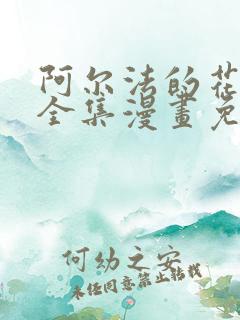 阿尔法的花
全集漫畫免
何幼之安
未经同意禁止转载